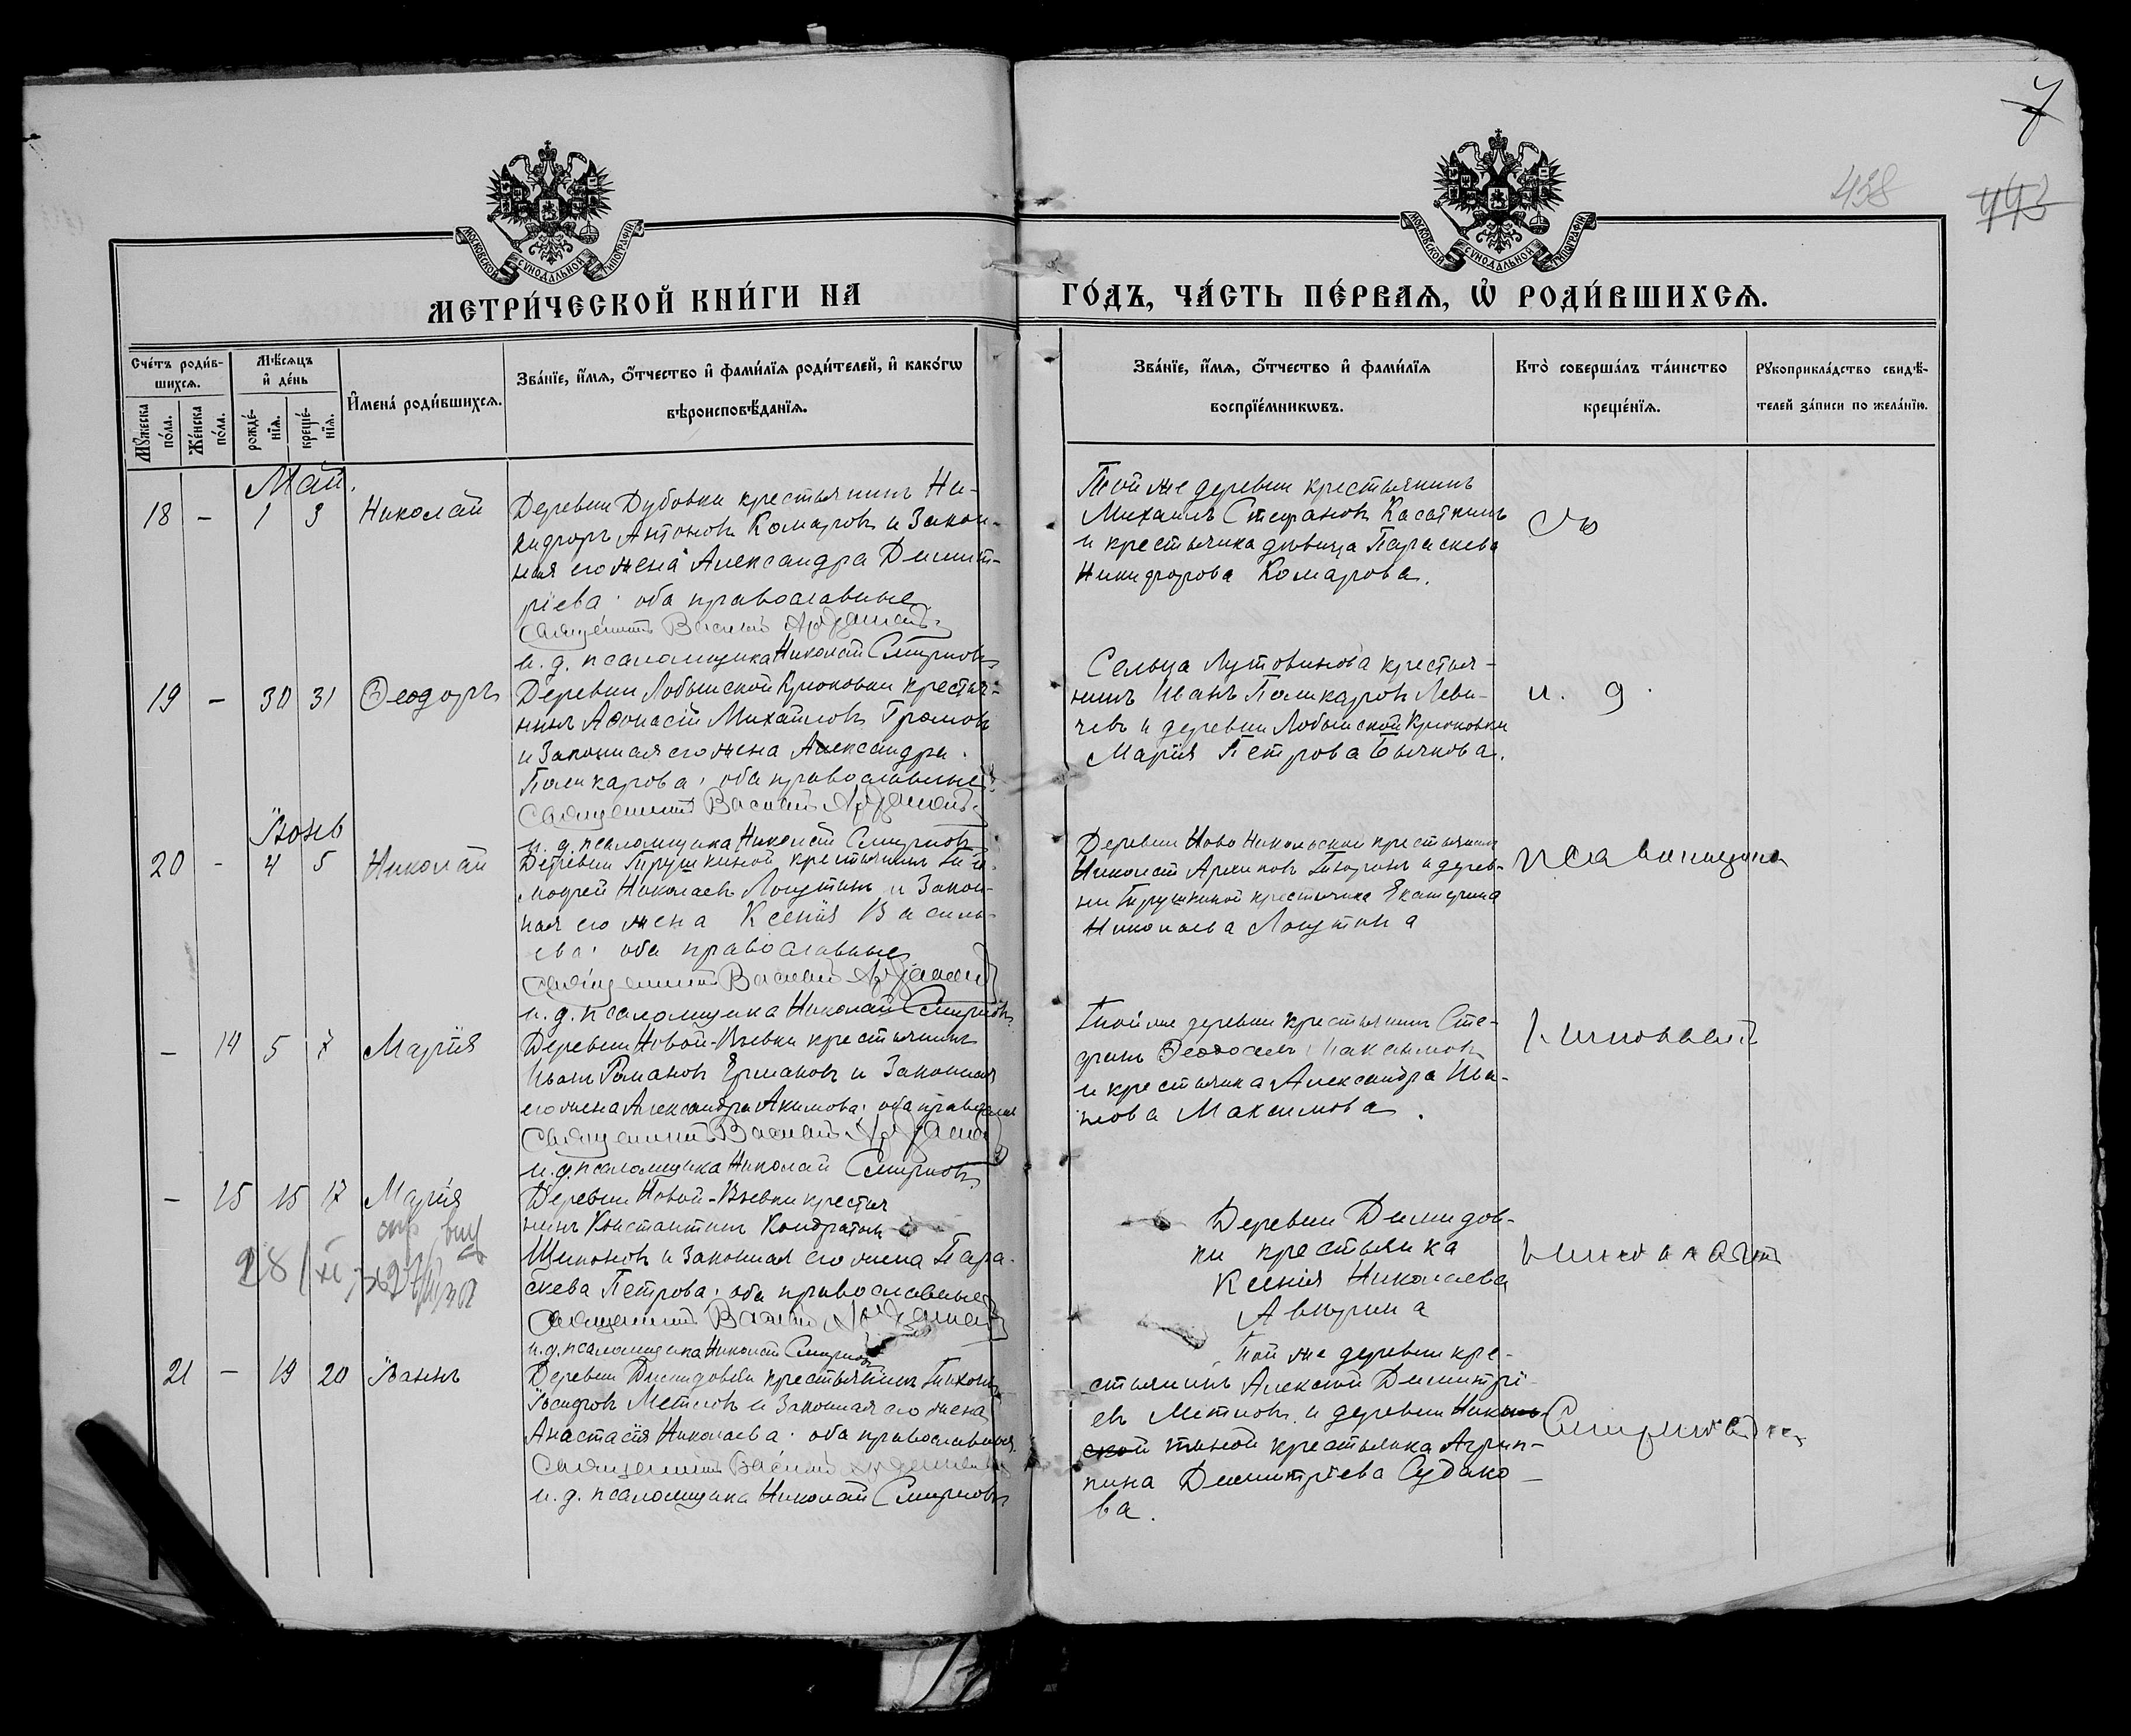 7
438
443
МОСКОВСКОЙ СѴНОДАЛЬНОЙ ТИПОГРАФІИ
МОСКОВСКОЙ СѴНОДАЛЬНОЙ ТИПОГРАФІИ
МЕТРИ́ЧЕСКОЙ КНИ́ГИ НА
ГО́ДЪ, ЧА́СТЬ ПЕ́РВАѦ, Ѡ҆ РОДИ́ВШИХСѦ.
Сче́тъ роди́в-
шихсѧ.
Мꙋ́жеска по́ла.
Же́нска по́ла.
Мѣ́сѧцъ
и҆ де́нь
рожде́-
нїѧ.
креще́-
нїѧ.
И҆мена́ роди́вшихсѧ.
Зва́нїе, и҆́мѧ, ѻ҆́тчество и҆ фами́лїѧ роди́телей, и҆ како́гѡ
вѣроисповѣ́данїѧ.
Зва́нїе, и҆́мѧ, ѻ҆́тчество и҆ фами́лїѧ
воспрїе́мникѡвъ.
Кто̀ соверша́лъ та́инство
креще́нїѧ.
Рꙋкоприкла́дство свидѣ́-
телей за́писи по жела́нїю.
Май.
18 - 1 3 Николай
Деревни Дубовки крестьянинъ Ни-
кифоръ Антоновъ Комаровъ и Закон-
ная его жена Александра Димит-
ріева; оба православные
Священникъ Василій
и. д. псаломщика Николай Смирновъ
Той же деревни крестьянинъ
Михаилъ Стефановъ Касаткинъ
и крестьянка дѣвица Параскева
Никифорова Комарова.
19 - 30 31 Ѳеодоръ
Деревни Лобынской Крюковки крестья-
нинъ Аѳонасій Михайловъ Громовъ
и Законная его жена Александра
Поликарова; оба православные
Священникъ Василій
и. д. псаломщика Николай Смирновъ
Сельца Лутовинова крестья-
нинъ Иванъ Поликаровъ Леви-
чевъ и деревни Лобынской Крюковки
Марія Петрова Бычкова.
и. д.
Іюнь
20 - 4 5 Николай
Деревни Трушкиной крестьянинъ Ти-
моѳей Николаевъ Логутинъ и Закон-
ная его жена Ксенія Василь-
ева; оба православные
Священникъ Василій
и. д. псаломщика Николай Смирновъ
Деревни Ново Никольской крестьянинъ
Николай Архиповъ Тюринъ и дерев-
ни Трушкиной крестьянка Екатерина
Николаева Логутина
псаломщика
- 14 5 7 Марія
Деревни Новой-Вьевки крестьянинъ
Иванъ Романовъ Ермаковъ и Законная
его жена Александра Акимова; оба православн
Священникъ Василій
и. д. псаломщика Николай Смирновъ
Той же деревни крестьянинъ Сте-
фанъ Ѳеодосіевъ Максимовъ
и крестьянка Александра Ива-
нова Максимова.
- 15 15 17 Марія
28/XI
Деревни Новой-Вьевки крестья
нинъ Константинъ Кондратовъ
Шионовъ и Законная его жена Пара-
скева Петрова; оба православные
Священникъ Василій
и. д. псаломщика Николай Смирновъ
Деревни Демидов-
ки крестьянка
Ксенія Николаева
Авширина
21 - 19 20 Іоаннъ
Деревни Демидовки крестьянинъ Тихонъ
Іосифовъ Метловъ и Законная его жена
Анастасія Николаева; оба православные.
Священникъ Василій
и. д. псаломщика Николай Смирновъ
Той же деревни кре-
стьянинъ Алексѣй Димитрі-
евъ Метловъ и деревни Николь-
ской тиной крестьянка Агрип-
пина Димитріева Судако-
ва.